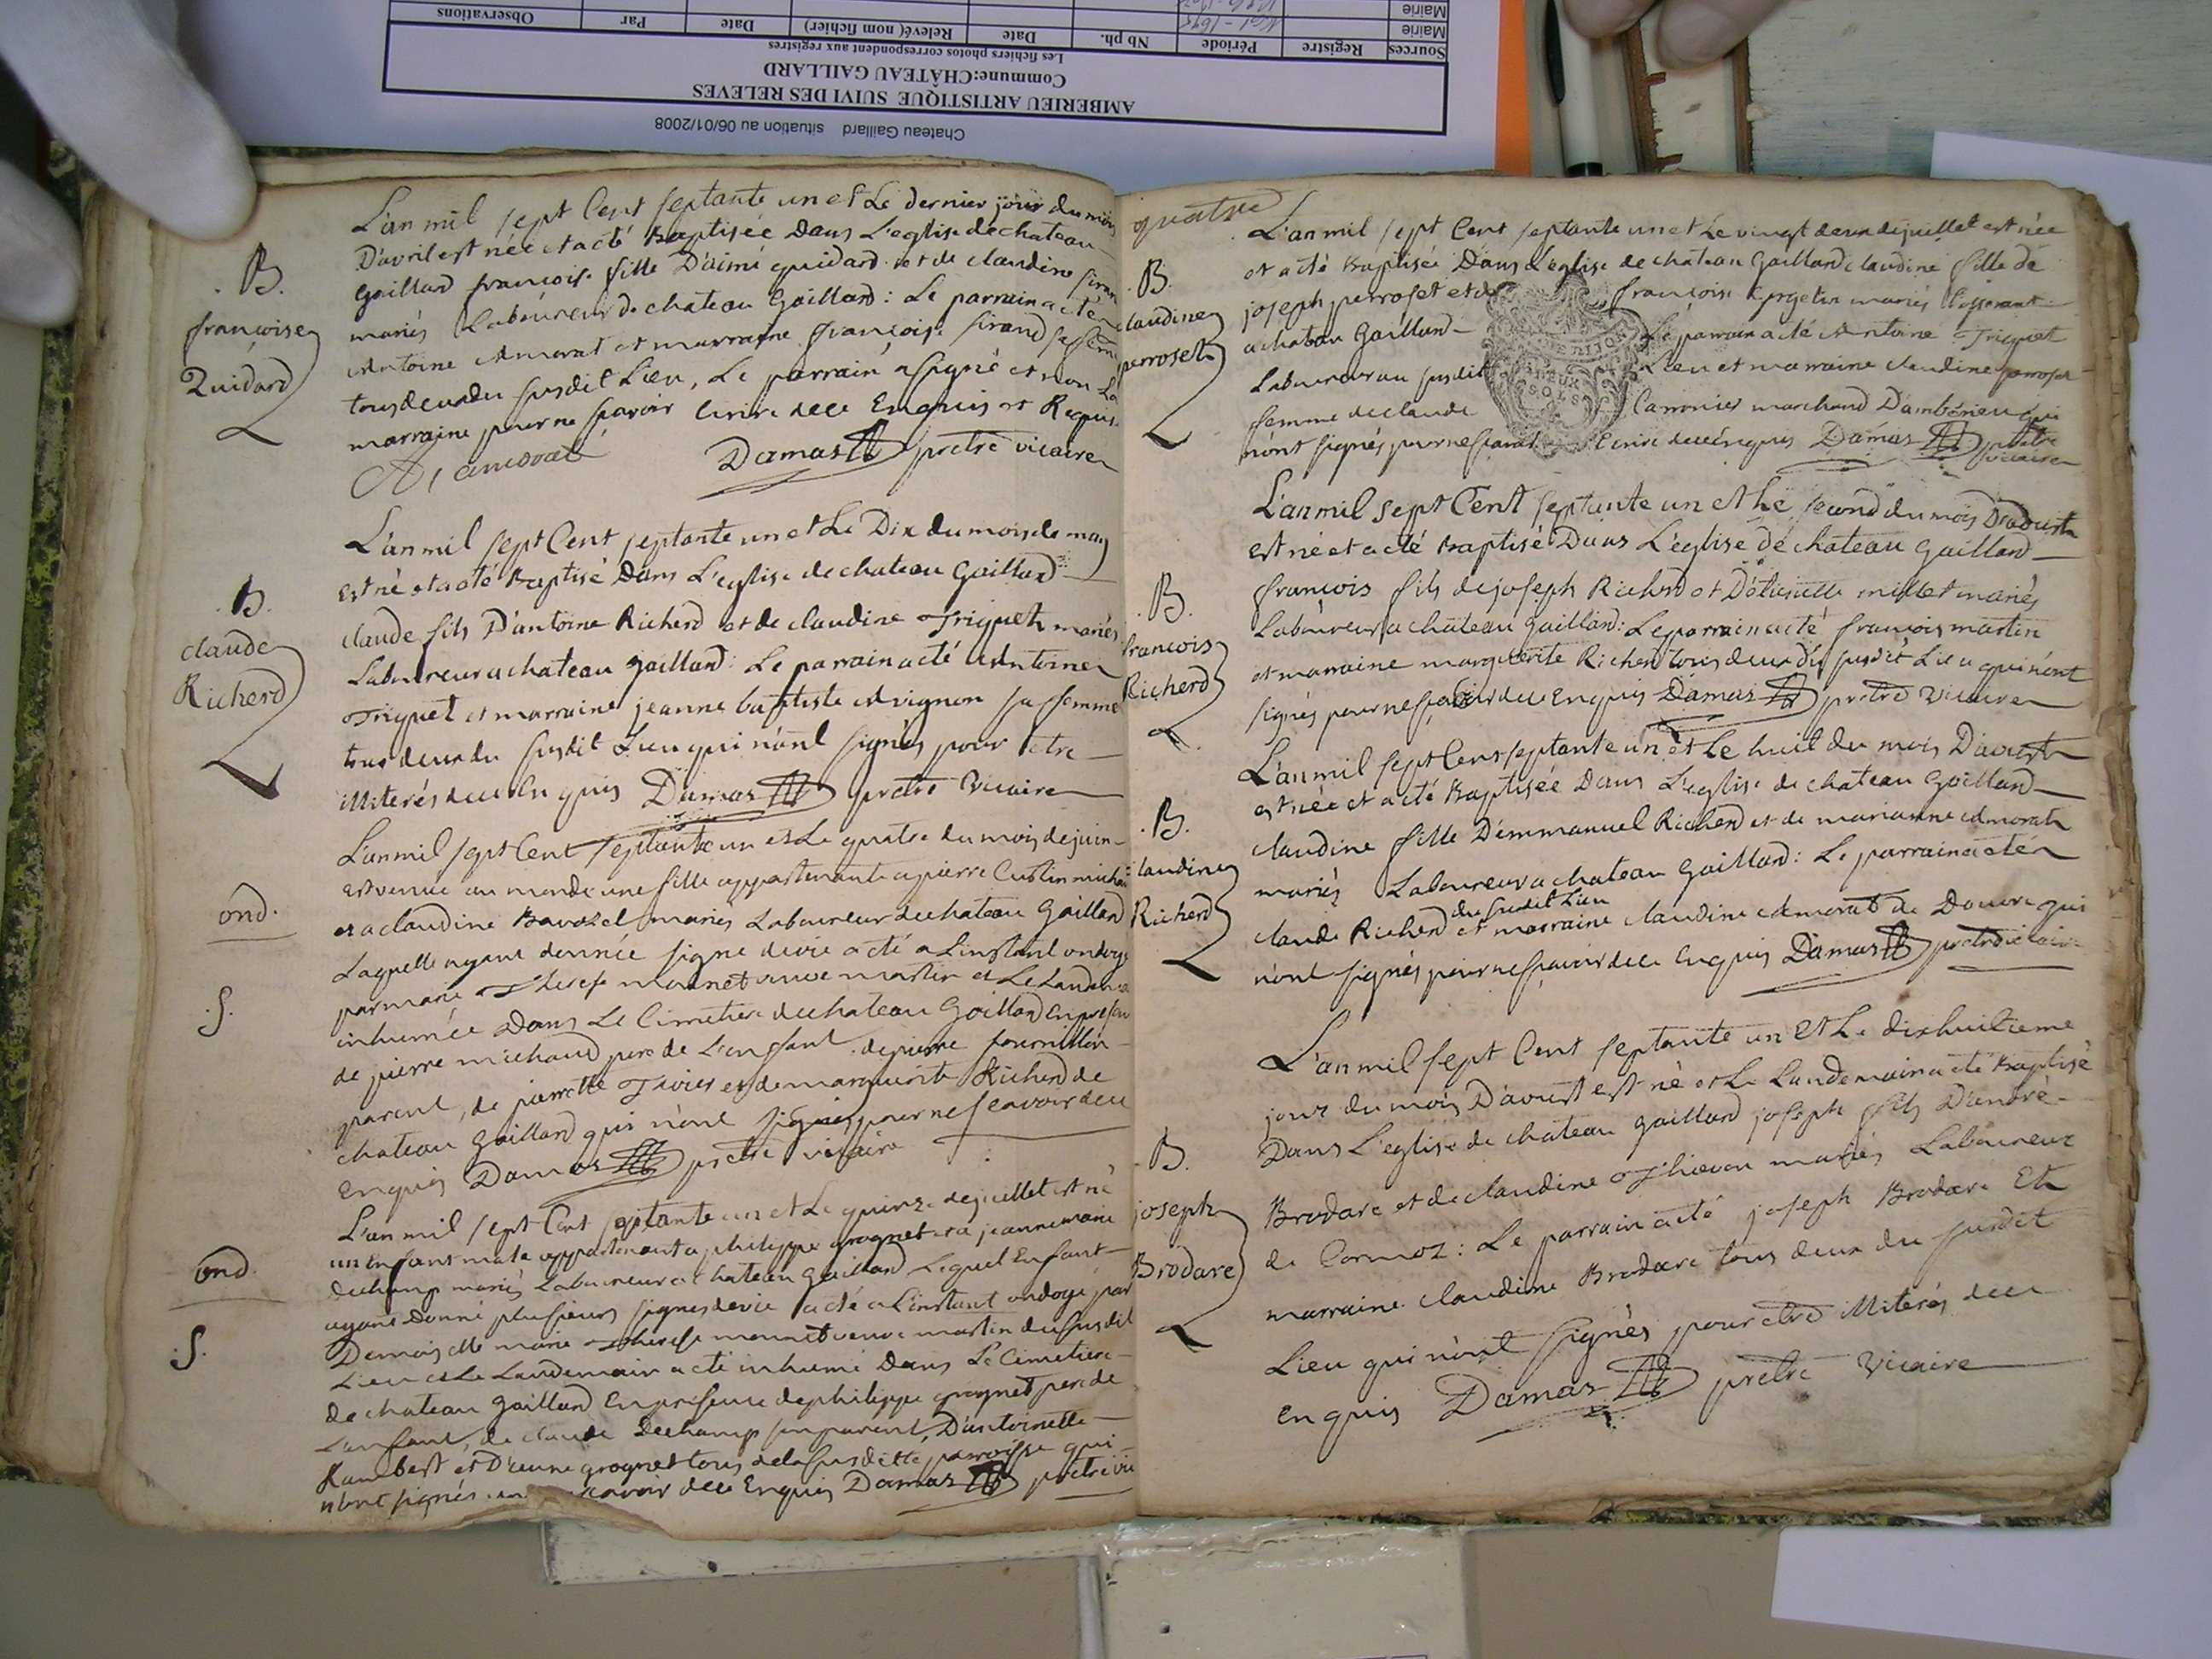 Chateau Gaillard situation au 06/01/2008
AMBERIEU ARTISTIQUE SUIVI DES RELEVES
Commune:CHÂTEAU GAILLARD
Les fichiers photos correspondent aux registres
Sources Registre Période Nb ph. Date Relevé( nom fichier) Date Par Observations
Mairie
Mairie
B.
françoise
Quidard
L'an mil sept Cent septante un et Le dernier jour du mois
D'avril est née et a eté Baptisée Dans L'eglise de chateau
Gaillard françoise fille D'aimé quidard et de claudine siran
mariés Laboureur de chateau Gaillard : Le parrain a été
Antoine Amorat et marraine françoise sirand sa femme
tous deux du susdit Lieu, Le parrain a signé et non La
marraine pour ne savoir Ecrire de ce Enquis et Requis.
Damas prêtre vicaire
B.
claude
Richerd
L'an mil sept Cent septante un et Le Dix du mois de may
est né et a eté Baptisé Dans L'eglise de chateau Gaillard
claude fils D'antoine Richerd et de claudine Triquet mariés
Laboureur a chateau gaillard : Le parrain a été Antoine
Triquet et marraine jeanne baptiste Avignon sa femme
tous deux du susdit Lieu qui n'ont signés pour etre
illiterés de ce Enquis Damas prêtre Vicaire
ond.
S.
L'an mil sept Cent septante un et Le quatre du mois de juin
est venue au monde une fille appartenante a pierre Custin michau
et a claudine Bavozel mariés Laboureur de chateau Gaillard
Laquelle ayant donnée signe de vie a été a L'instant ondoyé
par marie Therese monnet veuve martin et Le Landem
inhumée Dans Le Cimetiere de chateau Gaillard En presen
de pierre michaud pere de L'enfant de pierre fournillon
parent, de pierrette Tivier et de marguerite Richerd de
chateau Gaillard qui n'ont signés pour ne scavoir de ce
Enquis Damas prêtre vicaire
ond.
S.
L'an mil sept Cent septante un et Le quinze de juillet est né
un Enfant male appartenant a philippe grognet et a jeanne marie
dechamp mariés Laboureur a chateau gaillard Lequel Enfant
ayant Donné plusieurs signes de vie a été a L'instant ondoyé par
Demoiselle marie Therese monnet veuve martin du susdit
Lieu et Le Landemain a été inhumé Dans Le Cimetiere
de chateau gaillard En presence de philippe grognet pere de
L'enfant, de claude Dechamp son parent, D'antoinette
Rambert et D'eune grognet tous de la susditte paroisse qui
n'ont signés scavoir de ce Enquis Damas prêtre vic
quatre
B.
claudine
perroset
L'an mil sept Cent septante un et Le vingt deux de juillet est née
et a été Baptisée Dans L'eglise de chateau Gaillard claudine fille de
joseph perroset et de françoise mariés
a chateau Gaillard Le parrain a été Antoine Triquet
Laboureur au susdit Lieu et marraine claudine perroset
femme de claude Carronier marchand D'ambérieu qui
n'ont signés pour ne scavoir Ecrire de ce Enquis Damas prêtre
vicaire
DIJON
DEUX
SOLS
B.
francois
Richerd
L'an mil sept Cent septante un et Le second du mois D'aoust
est né et a été Baptisé Dans L'église de chateau Gaillard
françois fils de joseph Richerd et D'etiennette millet mariés
Laboureur a chateau gaillard : Le parrain a été françois martin
et marraine marguerite Richerd tous deux du susdit Lieu qui n'ont
signés pour ne savoir de ce Enquis Damas prêtre Vicaire
B.
claudine
Richerd
L'an mil sept Cent septante un et Le huit du mois D'aoust
est née et a été Baptisée Dans L'eglise de chateau Gaillard
claudine fille D'emmanuel Richerd et de marianne Amorat
mariés Laboureur a chateau Gaillard : Le parrain a été
du susdit Lieu
claude Richerd et marraine claudine Amorat de Douvre qui
n'ont signés pour ne scavoir de ce Enquis Damas prêtre vicaire
B.
joseph
Brodare
L'an mil sept Cent septante un Et Le dixhuitieme
jour du mois D'aoust est né et Le Landemain a été Baptisé
Dans L'eglise de chateau gaillard joseph fils D'andré
Brodare et de claudine Thievon mariés Laboureur
de Cormoz : Le parrain a été joseph Brodare Et
marraine claudine Brodare tous deux du susdit
Lieu qui n'ont signés pour etre illiterés de ce
enquis Damas prêtre Vicaire